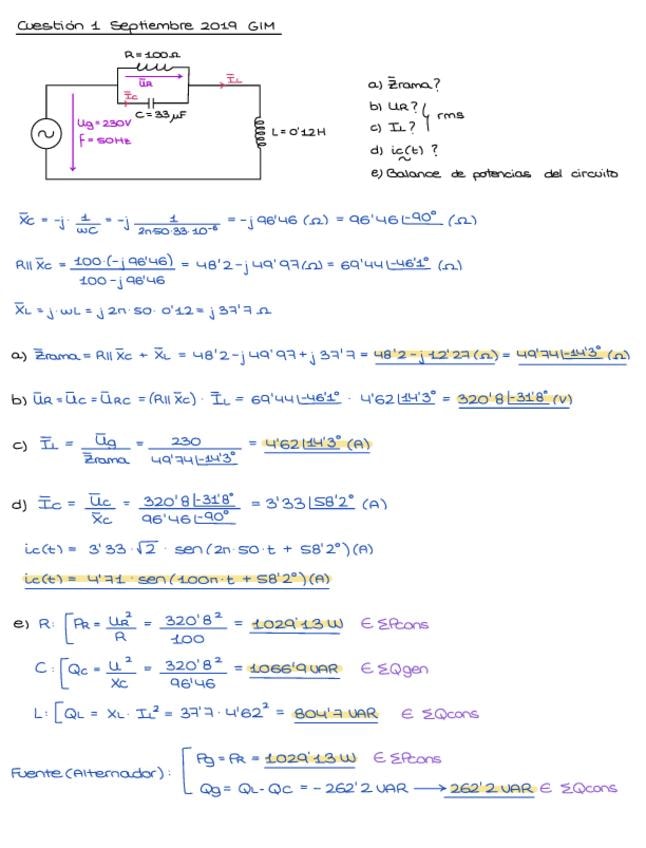 Cuestión 1 Septiembre 2019 GIM
R=100Ω
ŪR
ĪL
Īc
C=33μF
Ug=230V
F=50Hz
L=0'12H
a) Z̄rama?
b) UR?
c) IL? rms
d) ic(t) ?
e) Balance de potencias del circuito
X̄c = -j · 1/ωC = -j 1/2π50·33·10⁻⁶ = -j 96'46 (Ω) = 96'46 |-90° (Ω)
R|| X̄c = 100·(-j96'46)/100-j96'46 = 48'2-j49'97(Ω) = 69'44 |-46'1° (Ω)
X̄L = j·ωL = j2π·50·0'12 = j37'7Ω
a) Z̄rama = R|| X̄c + X̄L = 48'2-j49'97+j37'7 = 48'2-j12'27(Ω) = 49'74 |-14'3° (Ω)
b) ŪR = Ūc = ŪRC = (R|| X̄c) · ĪL = 69'44 |-46'1° · 4'62 |14'3° = 320'8 |-31'8° (V)
c) ĪL = Ūg/Z̄rama = 230/49'74 |-14'3° = 4'62 |14'3° (A)
d) Īc = Ūc/X̄c = 320'8 |-31'8°/96'46 |-90° = 3'33 |58'2° (A)
ic(t) = 3'33 · √2 · sen(2π·50·t + 58'2°)(A)
ic(t) = 4'71 · sen(100π·t + 58'2°)(A)
e) R: [PR = UR²/R = 320'8²/100 = 1029'13 W ∈ ΣPcons
C: [Qc = U²/Xc = 320'8²/96'46 = 1066'9 VAR ∈ ΣQgen
L: [QL = XL · IL² = 37'7 · 4'62² = 804'7 VAR ∈ ΣQcons
Fuente (Alternador): [ Pg = PR = 1029'13 W ∈ ΣPcons
Qg = QL - Qc = -262'2 VAR → 262'2 VAR ∈ ΣQcons